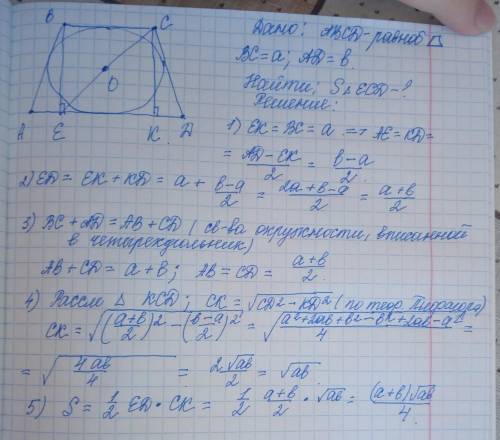 B C
O
A E K D
Дано: ABCD-равноб
BC=a; AD=b.
Найти; S△ECD-?
Решение:
1) EK=BC=a ⟹ AE=KD=
= AD-EK/2 = b-a/2
2) ED= EK+KD= a + b-a/2 = 2a+b-a/2 = a+b/2
3) BC+AD=AB+CD ( св-ва окружности, вписанной
в четырехугольник)
AB+CD= a+b; AB=CD= a+b/2.
4) Рассм △ KCD; CK=√CD²-KD² (по теор. Пифагора)
CK=√(a+b/2)²-(b-a/2)² = √a²+2ab+b²-b²+2ab-a²/4 =
= √4ab/4 = 2√ab/2 = √ab.
5) S= 1/2 ED·CK= 1/2 a+b/2 · √ab= (a+b)√ab/4.